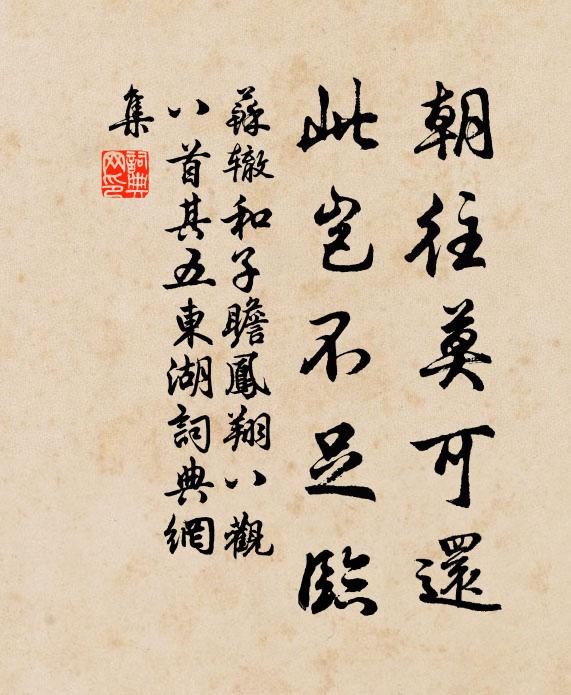 朝往莫可還
此岂不足臨
蘇辙和子瞻鳳翔八觀
八首其五東湖詞典網
集
詞典
网印